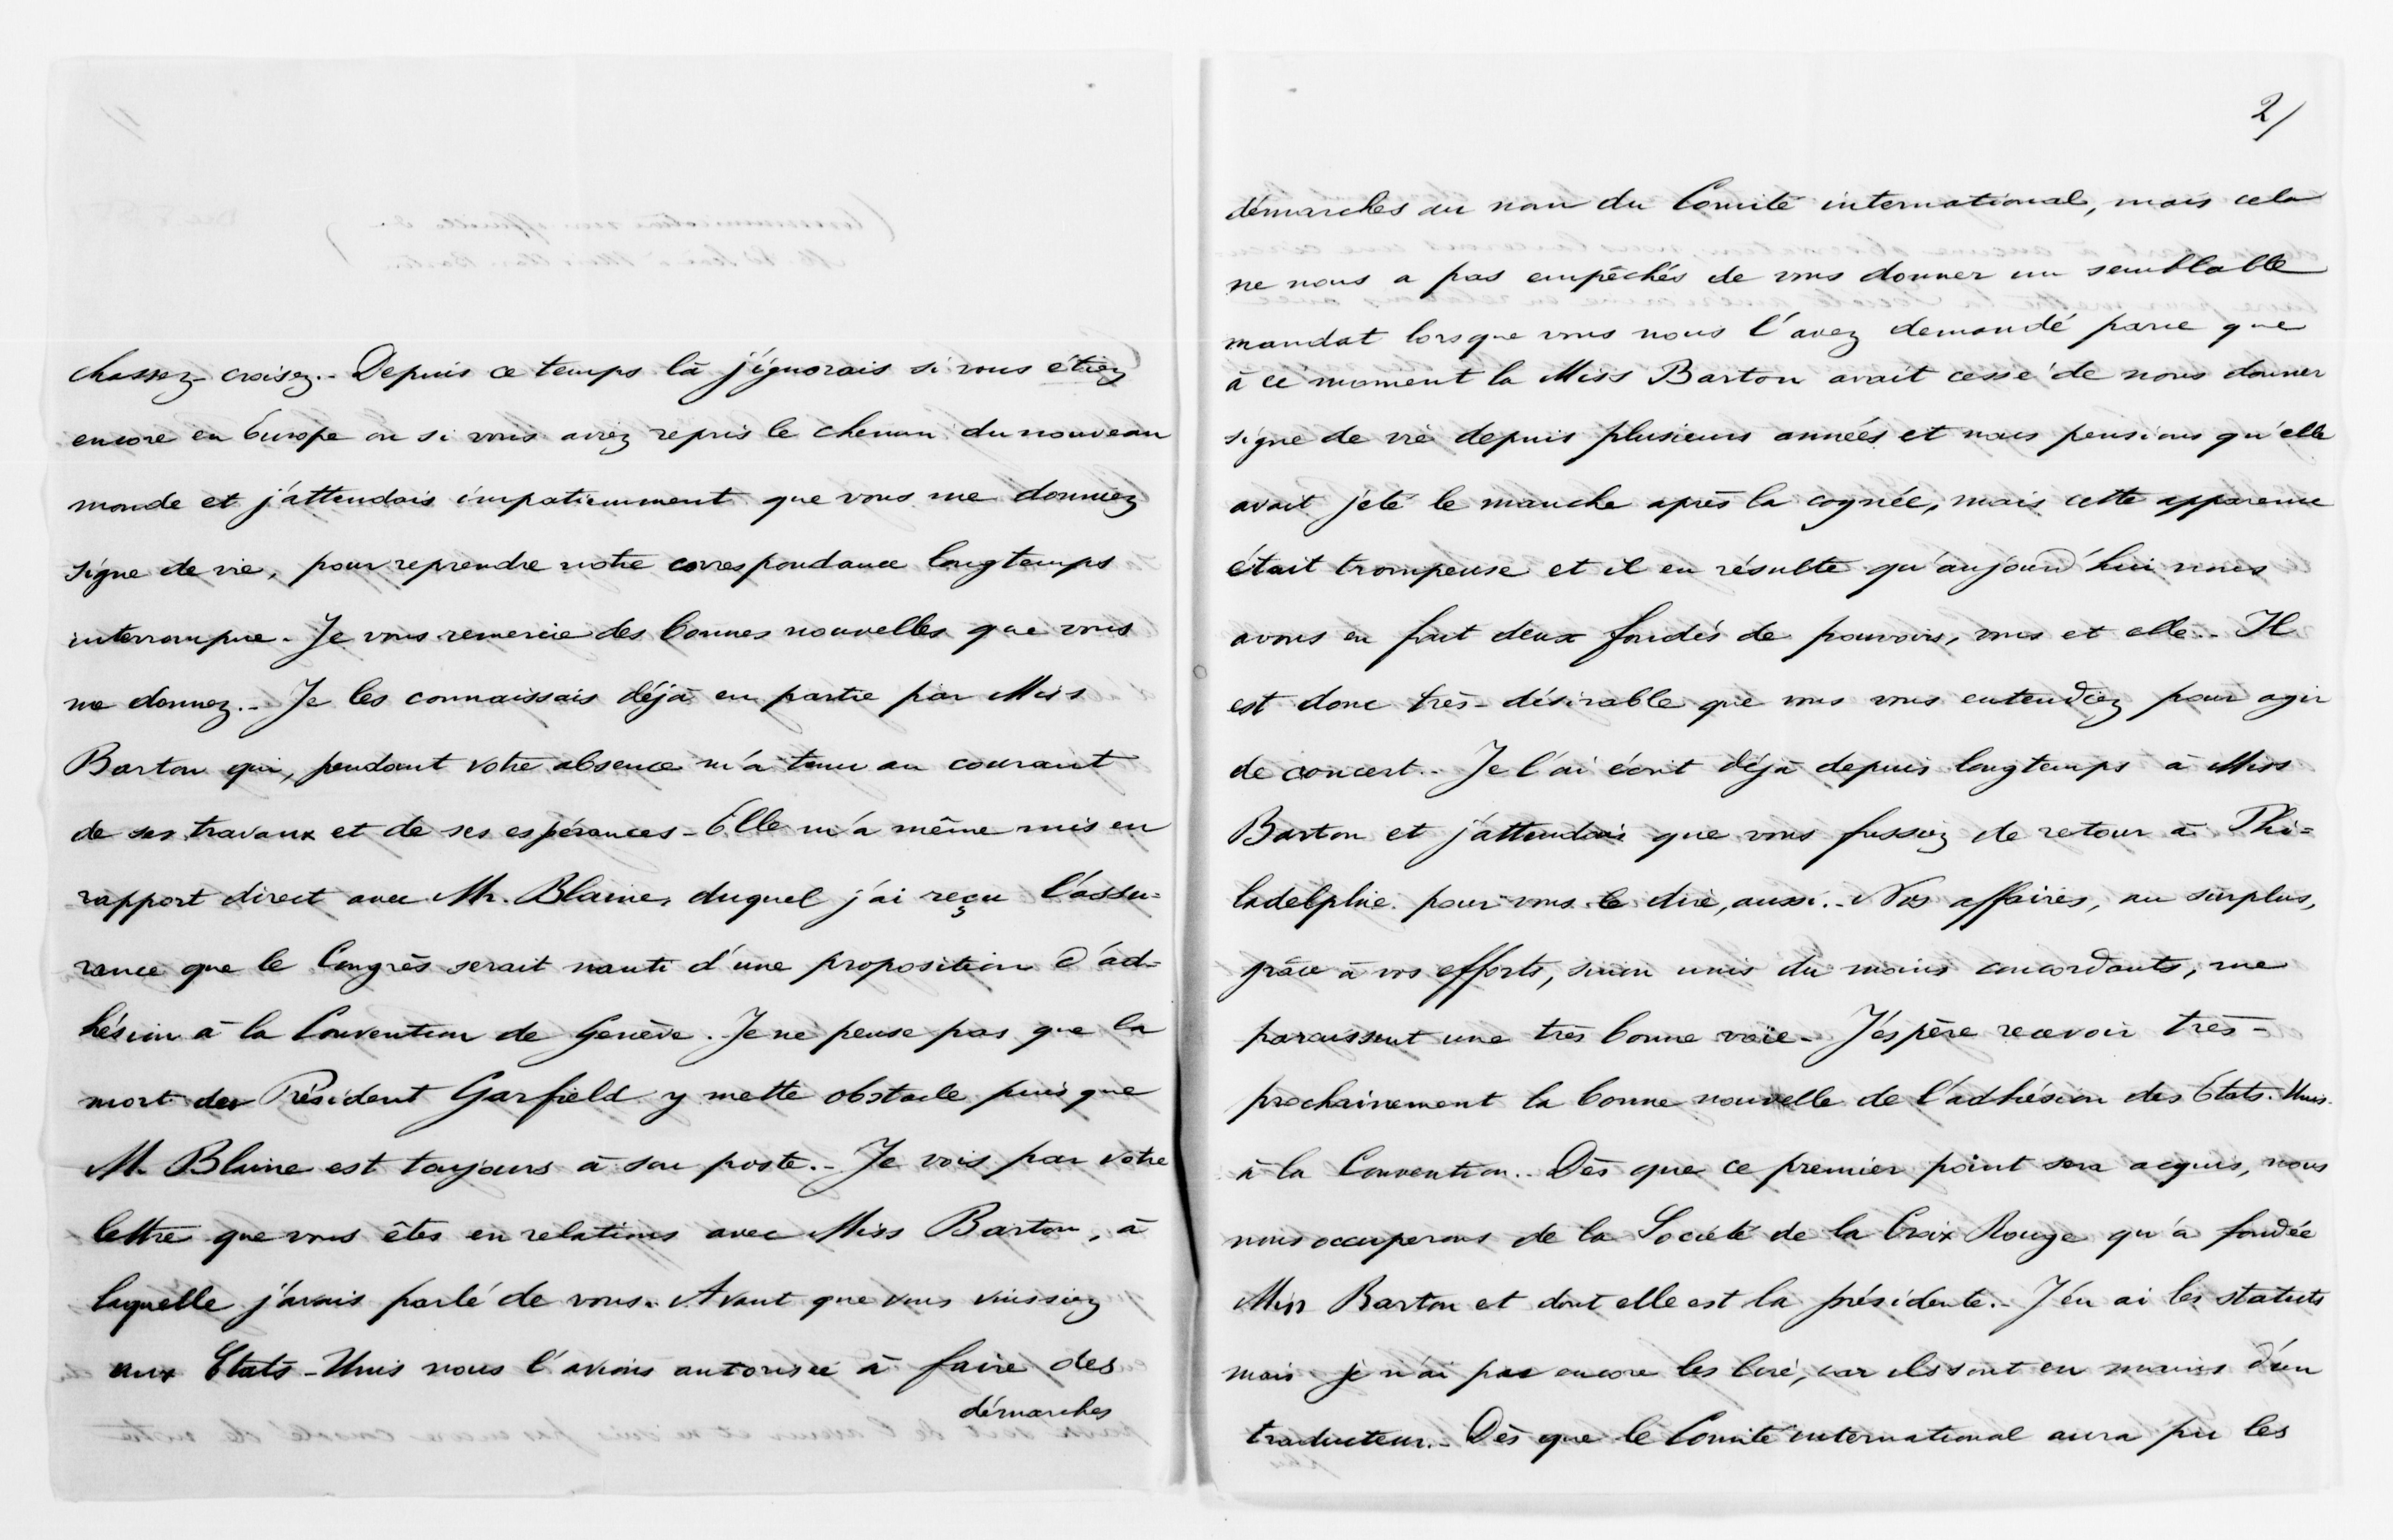 chassez-croisez.- Depuis ce temps là j'ignorais si vous étiez
encore en Europe ou si vous aviez repris le chemin du nouveau
monde et j'attendais impatiemment que vous me donniez
signe de vie, pour reprendre notre correspondance longtemps
interrompue. Je vous remercie des bonnes nouvelles que vous
me donnez.- Je les connaissais déjà en partie par Miss
Barton qui, pendant votre absence m'a tenu au courant
de ses travaux et de ses espérances - Elle m'a même mis en
rapport direct avec Mr. Blaine, duquel j'ai reçu l'assu=
rance que le Congrès serait nanti d'une proposition d'ad=
hésion à la Convention de Genève. Je ne pense pas que la
mort du Président Garfield y mette obstacle puisque
M. Blaine est toujours à son poste.- Je vois par votre
lettre que vous êtes en relations avec Miss Barton, à
laquelle j'avais parlé de vous. Avant que vous vinssiez
aux Etats-Unis nous l'avions autorisée à faire des
démarches
2/
démarches au nom du Comité international, mais cela
ne nous a pas empêchés de vous donner un semblable
mandat lorsque vous nous l'avez demandé parce que
à ce moment là Miss Barton avait cessé de nous donner
signe de vie depuis plusieurs années et nous pensions qu'elle
avait jeté le manche après la cognée, mais cette apparence
était trompeuse et il en résulte qu'aujourd'hui nous
avons en fait deux fondés de pouvoirs, vous et elle.- Il
est donc très-désirable que vous vous entendiez pour agir
de concert.- Je l'ai écrit déjà depuis longtemps à Miss
Barton et j'attendais que vous fussiez de retour à Phi=
ladelphie pour vous le dire, aussi.- Nos affaires, au surplus,
grâce à vos efforts, sinon unis du moins concordants, me
paraissent une très bonne voie - J'espère recevoir très-
prochainement la bonne nouvelle de l'adhésion des Etats-Unis
à la Convention.- Dès que ce premier point sera acquis, nous
nous occuperons de la Société de la Croix Rouge qu'a fondée
Miss Barton et dont elle est la présidente.- J'en ai les statuts
mais je n'ai pas encore les liré, car ils sont en mains d'un
traducteur.- Dès que le Comité international aura pu les